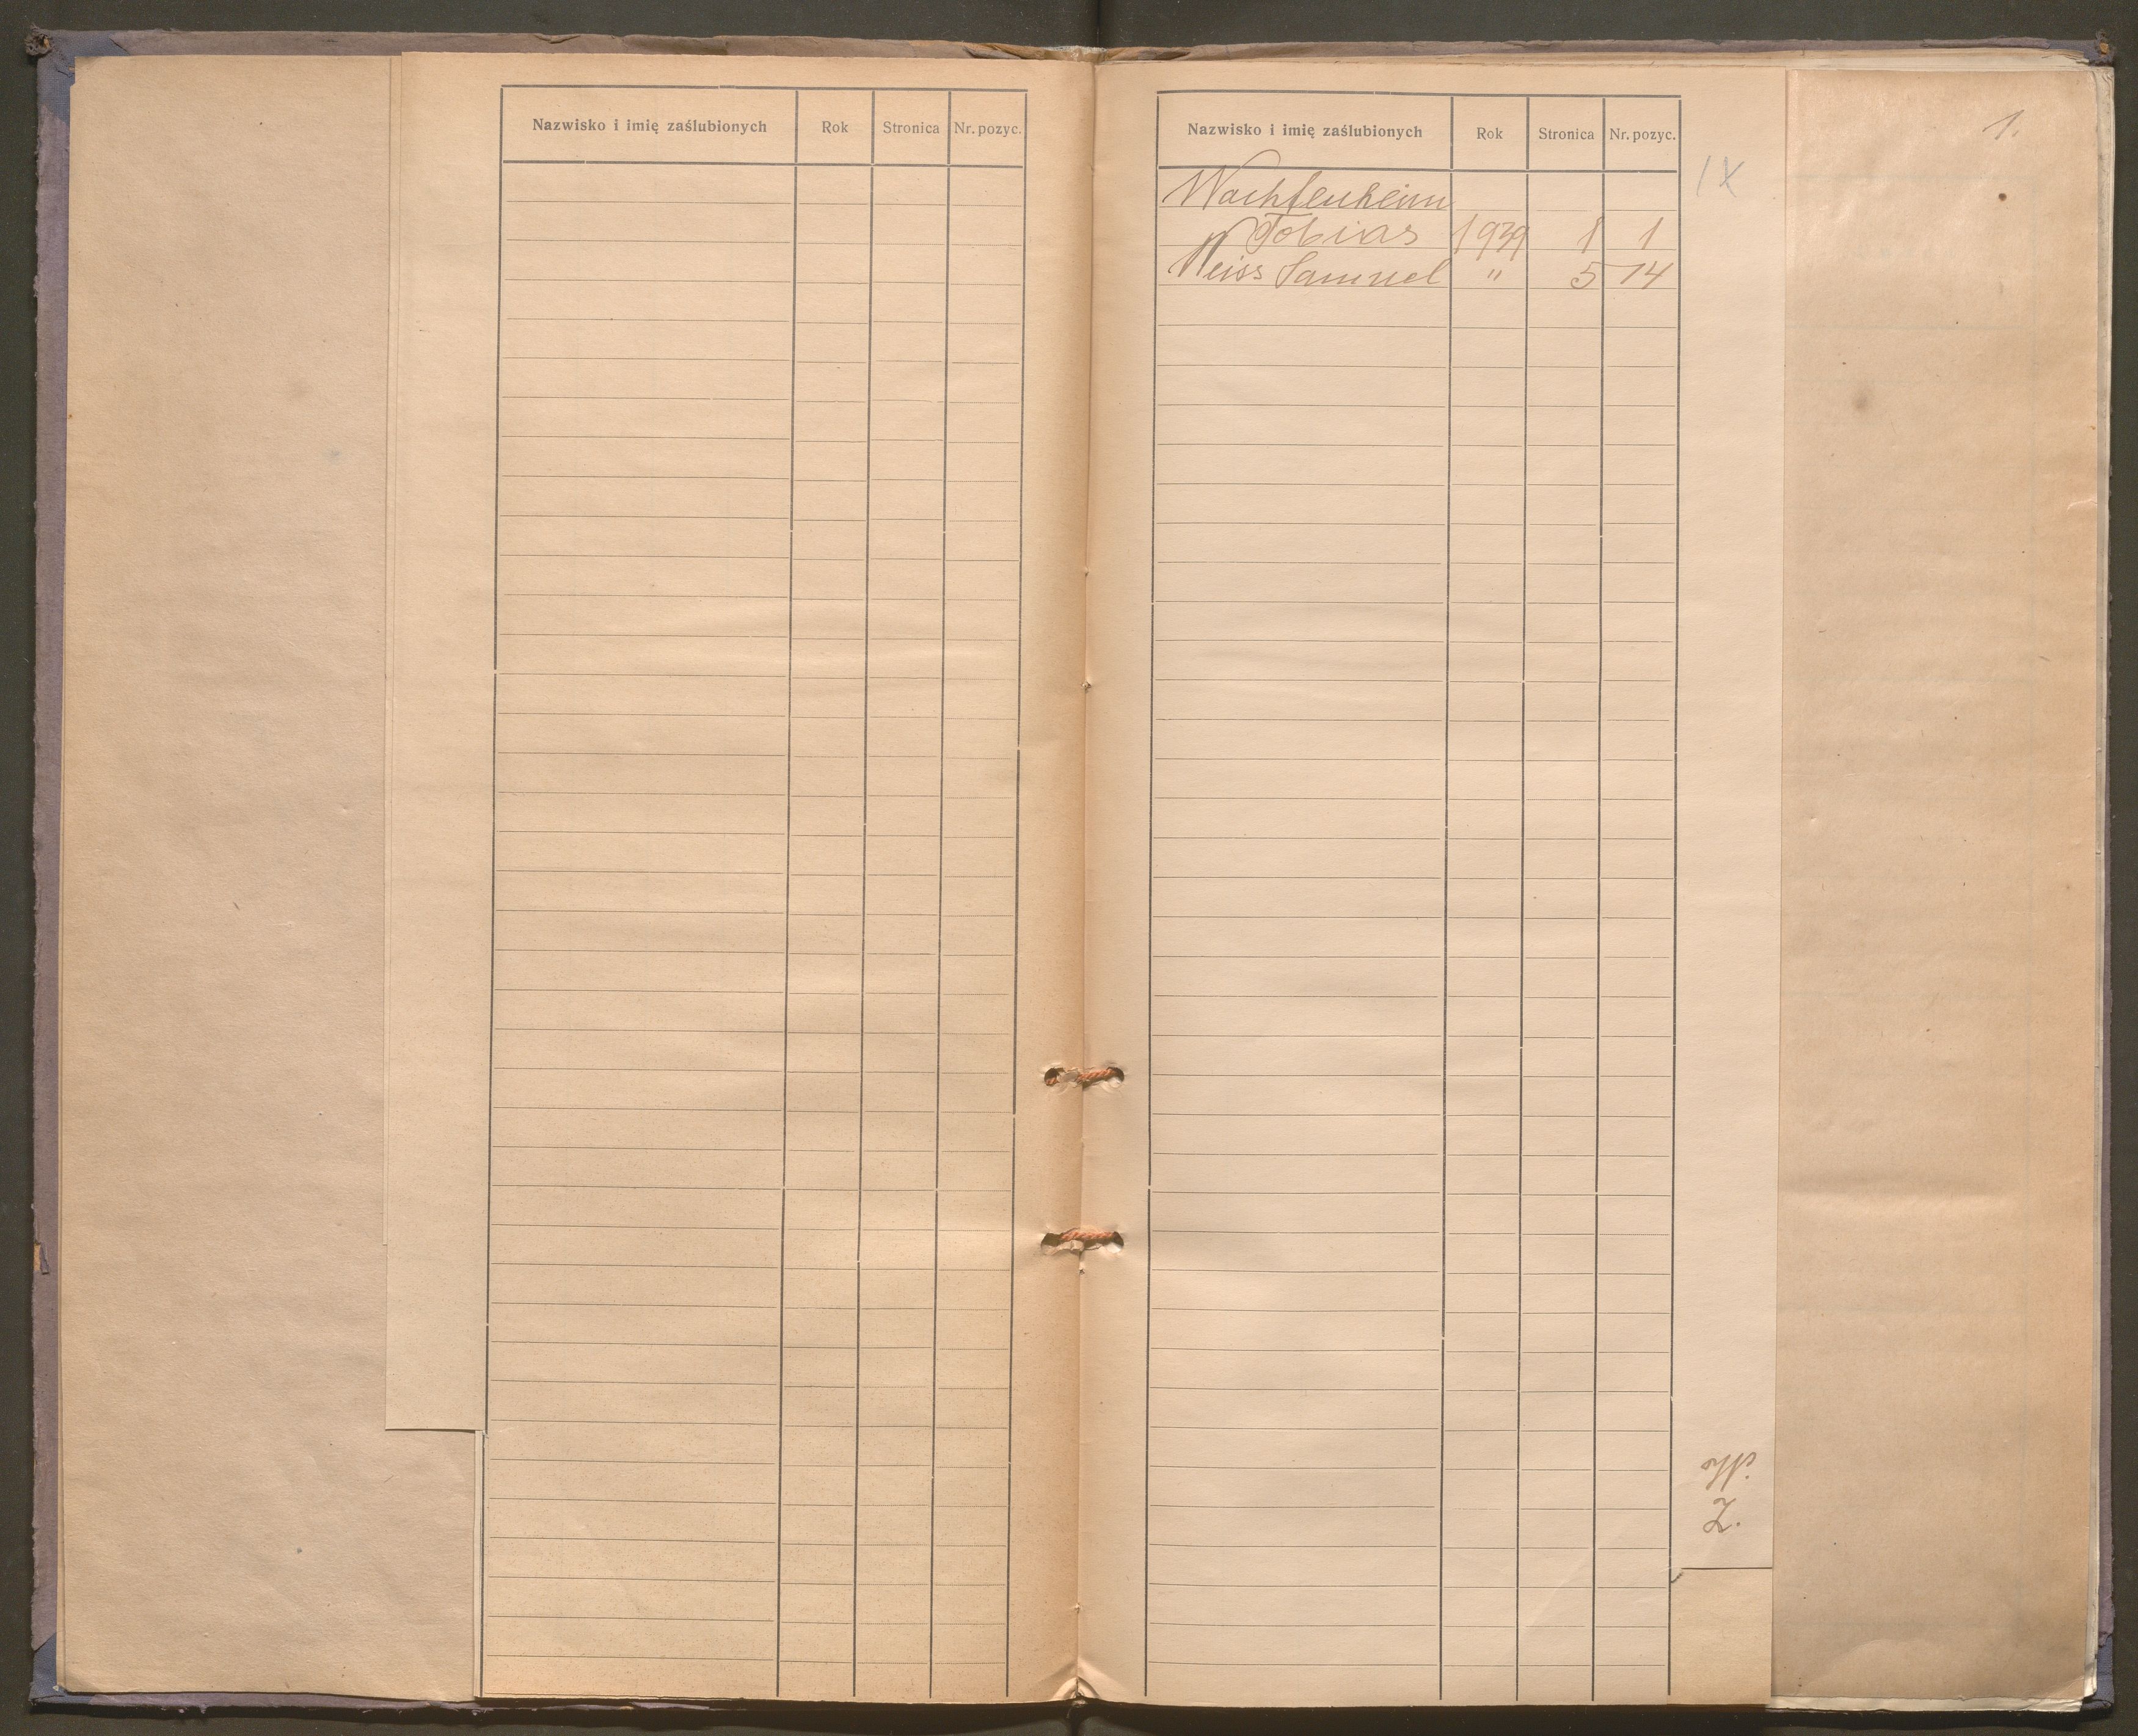 Nazwisko i imię zaślubionych Rok Stronica Nr. pozyc.
Nazwisko i imię zaślubionych Rok Stronica Nr. pozyc.
Wachtenheim
Tobias 1939 1 1
Weiss Samuel " 5 14
1.
IX
Z.